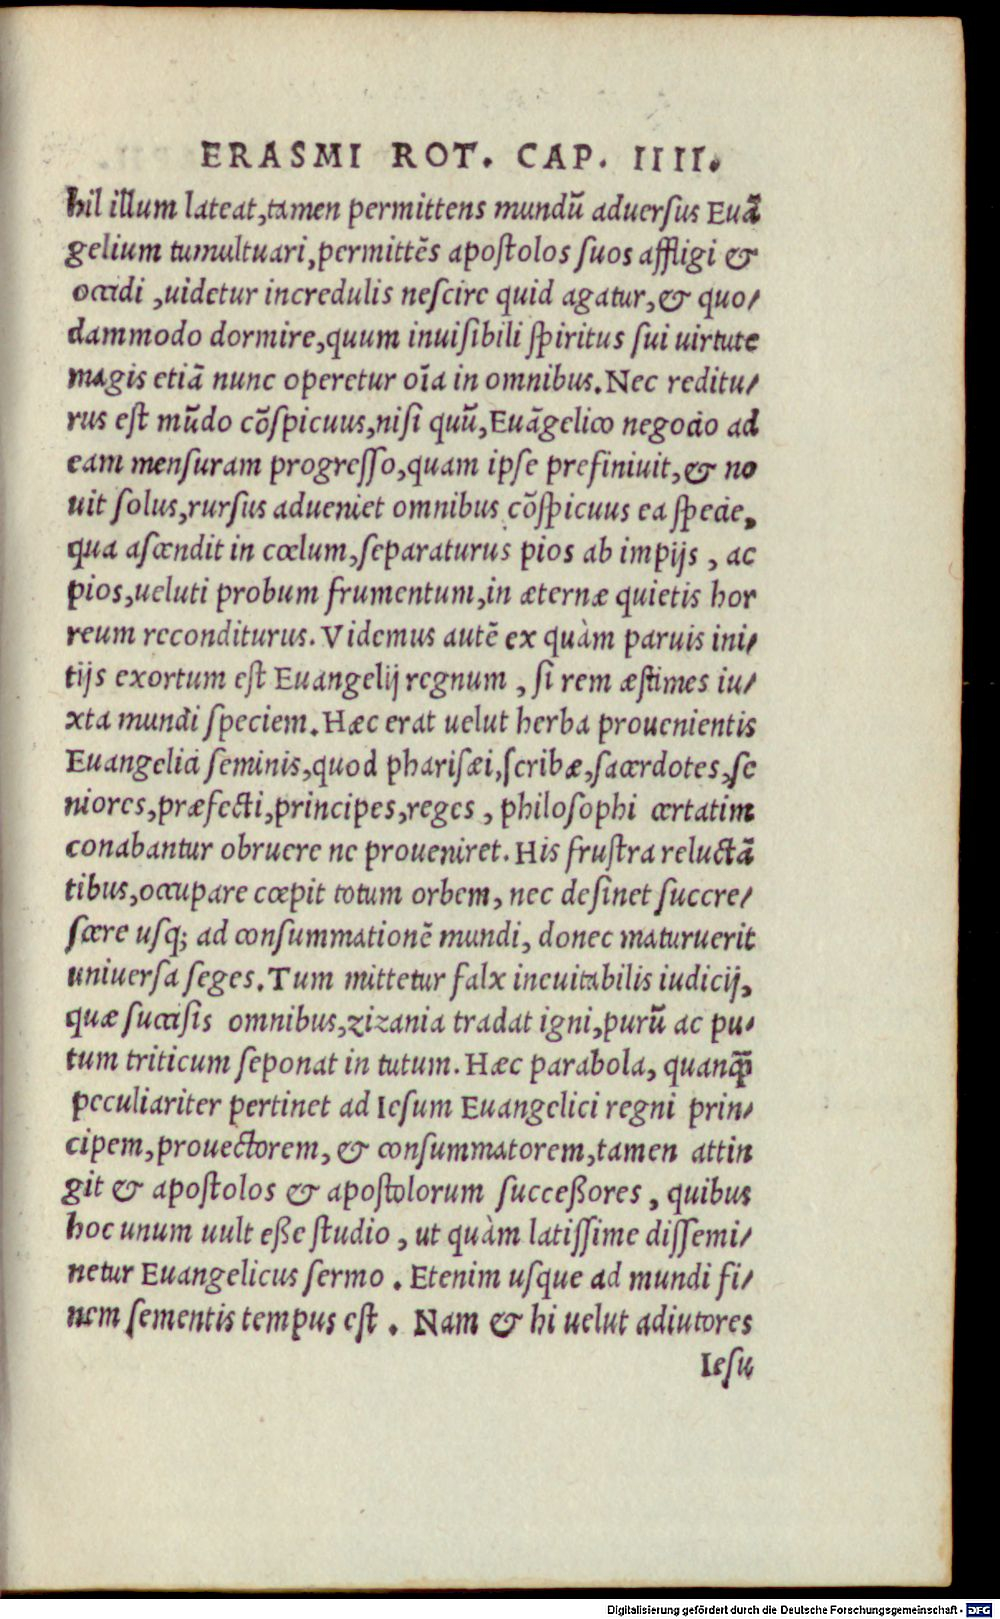 ERASMI ROT. CAP. IIII.
hil illum lateat,tamen permittens mundū aduersus Euā
gelium tumultuari,permittēs apostolos suos affligi &
occidi ,uidetur incredulis nescire quid agatur,& quo/
dammodo dormire,quum inuisibili spiritus sui uirtute
magis etiā nunc operetur oīa in omnibus.Nec reditu/
rus est mūdo cōspicuus,nisi quū,Euāgelico negocio ad
eam mensuram progresso,quam ipse prefiniuit,& no
uit solus,rursus adueniet omnibus cōspicuus ea specie,
qua ascendit in cœlum,separaturus pios ab impijs , ac
pios,ueluti probum frumentum,in æternæ quietis hor
reum reconditurus. Videmus autē ex quàm paruis ini/
tijs exortum est Euangelij regnum , si rem æstimes iu/
xta mundi speciem. Hæc erat uelut herba prouenientis
Euangelici seminis,quod pharisæi,scribæ,sacerdotes,se
niores,præfecti,principes,reges , philosophi certatim
conabantur obruere ne proueniret. His frustra reluctā
tibus,occupare cœpit totum orbem, nec desinet succre/
scere usq; ad consummationē mundi, donec maturuerit
uniuersa seges. Tum mittetur falx ineuitabilis iudicij,
quæ succisis omnibus,zizania tradat igni,purū ac pu/
tum triticum seponat in tutum. Hæc parabola, quanq̄
peculiariter pertinet ad Iesum Euangelici regni prin/
cipem,prouectorem, & consummatorem,tamen attin
git & apostolos & apostolorum succeßores , quibus
hoc unum uult eße studio , ut quàm latissime dissemi/
netur Euangelicus sermo . Etenim usque ad mundi fi/
nem sementis tempus est . Nam & hi uelut adiutores
Iesu
Digitalisierung gefördert durch die Deutsche Forschungsgemeinschaft - DFG